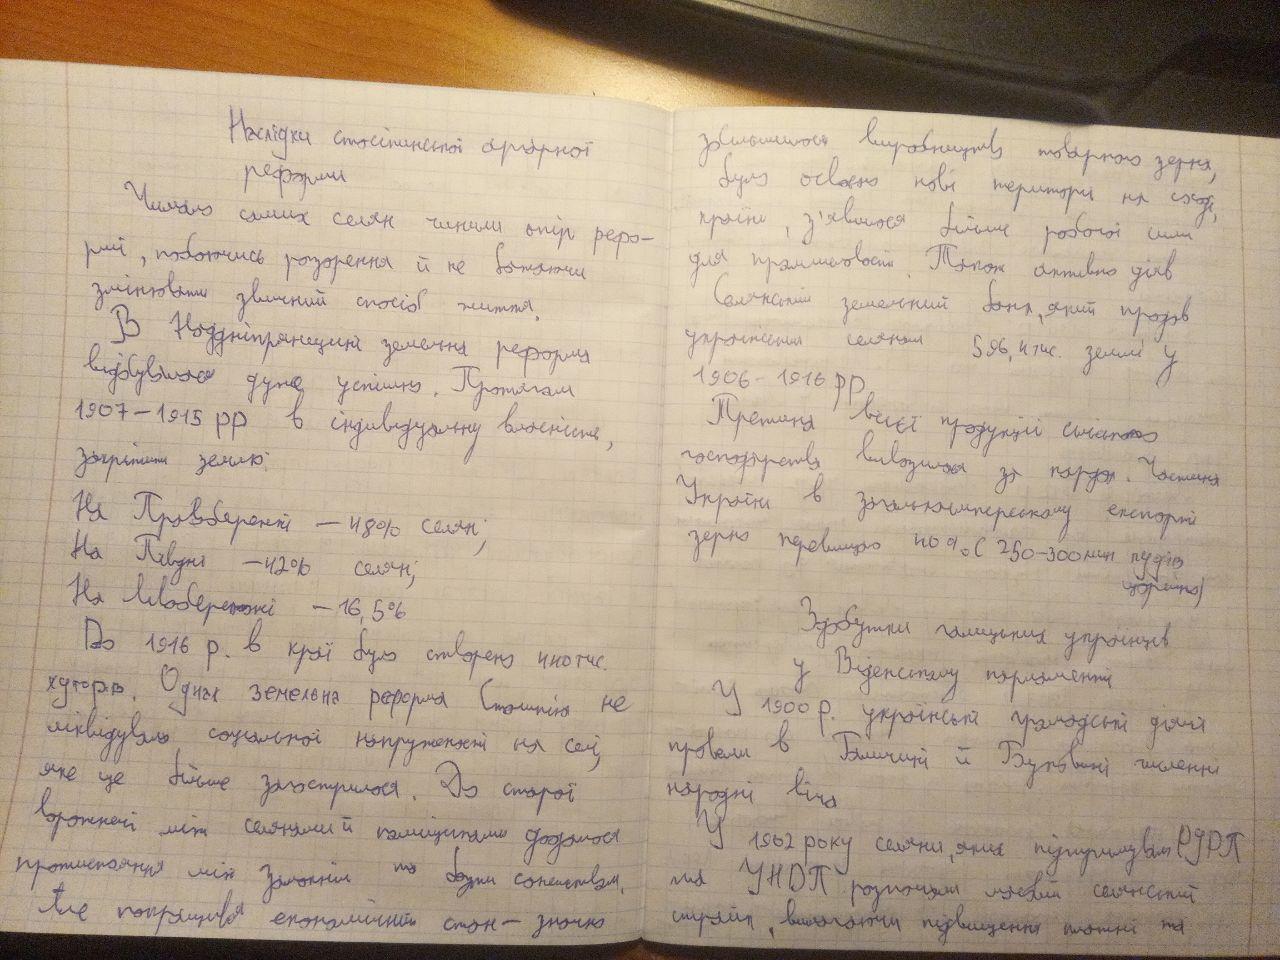 Наслідки столипінської аграрної
реформи
Чимало самих селян чинили опір рефо-
рмі, побоюючись розорення й не бажаючи
змінювати звичний спосіб життя.
В Наддніпрянщині земельна реформа
відбувалася дуже успішно. Протягом
1907-1915 рр в індивідуальну власність,
закріпили землю:
На Правобережжі - 48% селян;
На Півдні - 42% селян;
На Лівобережжі - 16,5%
До 1916 р. в краї було створено 440 тис.
хуторів. Однак земельна реформа Столипіна не
ліквідувала соціальної напруженості на селі,
яке ще більше загострилося. До старої
ворожнечі між селянами й поміщиками додалося
протистояння між заможнім та бідним селянством.
Але покращився економічний стан - значно
збільшилося виробництво товарного зерна,
було освоєно нові території на сході,
країни, з'явилося більше робочої сили
для промисловості. Також активно діяв
Селянський земельний банк, який продав
українським селянам 596,4 тис. землі у
1906-1916 рр.
Третина всієї продукції сільського
господарства вивозилася за кордон. Частина
України в загальноімперському експорті
зерна перевищило 40% (250-300 млн пудів
щорічно)
Здобутки галицьких українців
у Віденському парламенті
У 1900 р. українські громадські діячі
провели в Галичині й Буковині численні
народні віча
У 1902 року селяни, яких підтримували РУРП
та УНДП розпочали масовий селянський
страйк, вимагаючи підвищення платні та